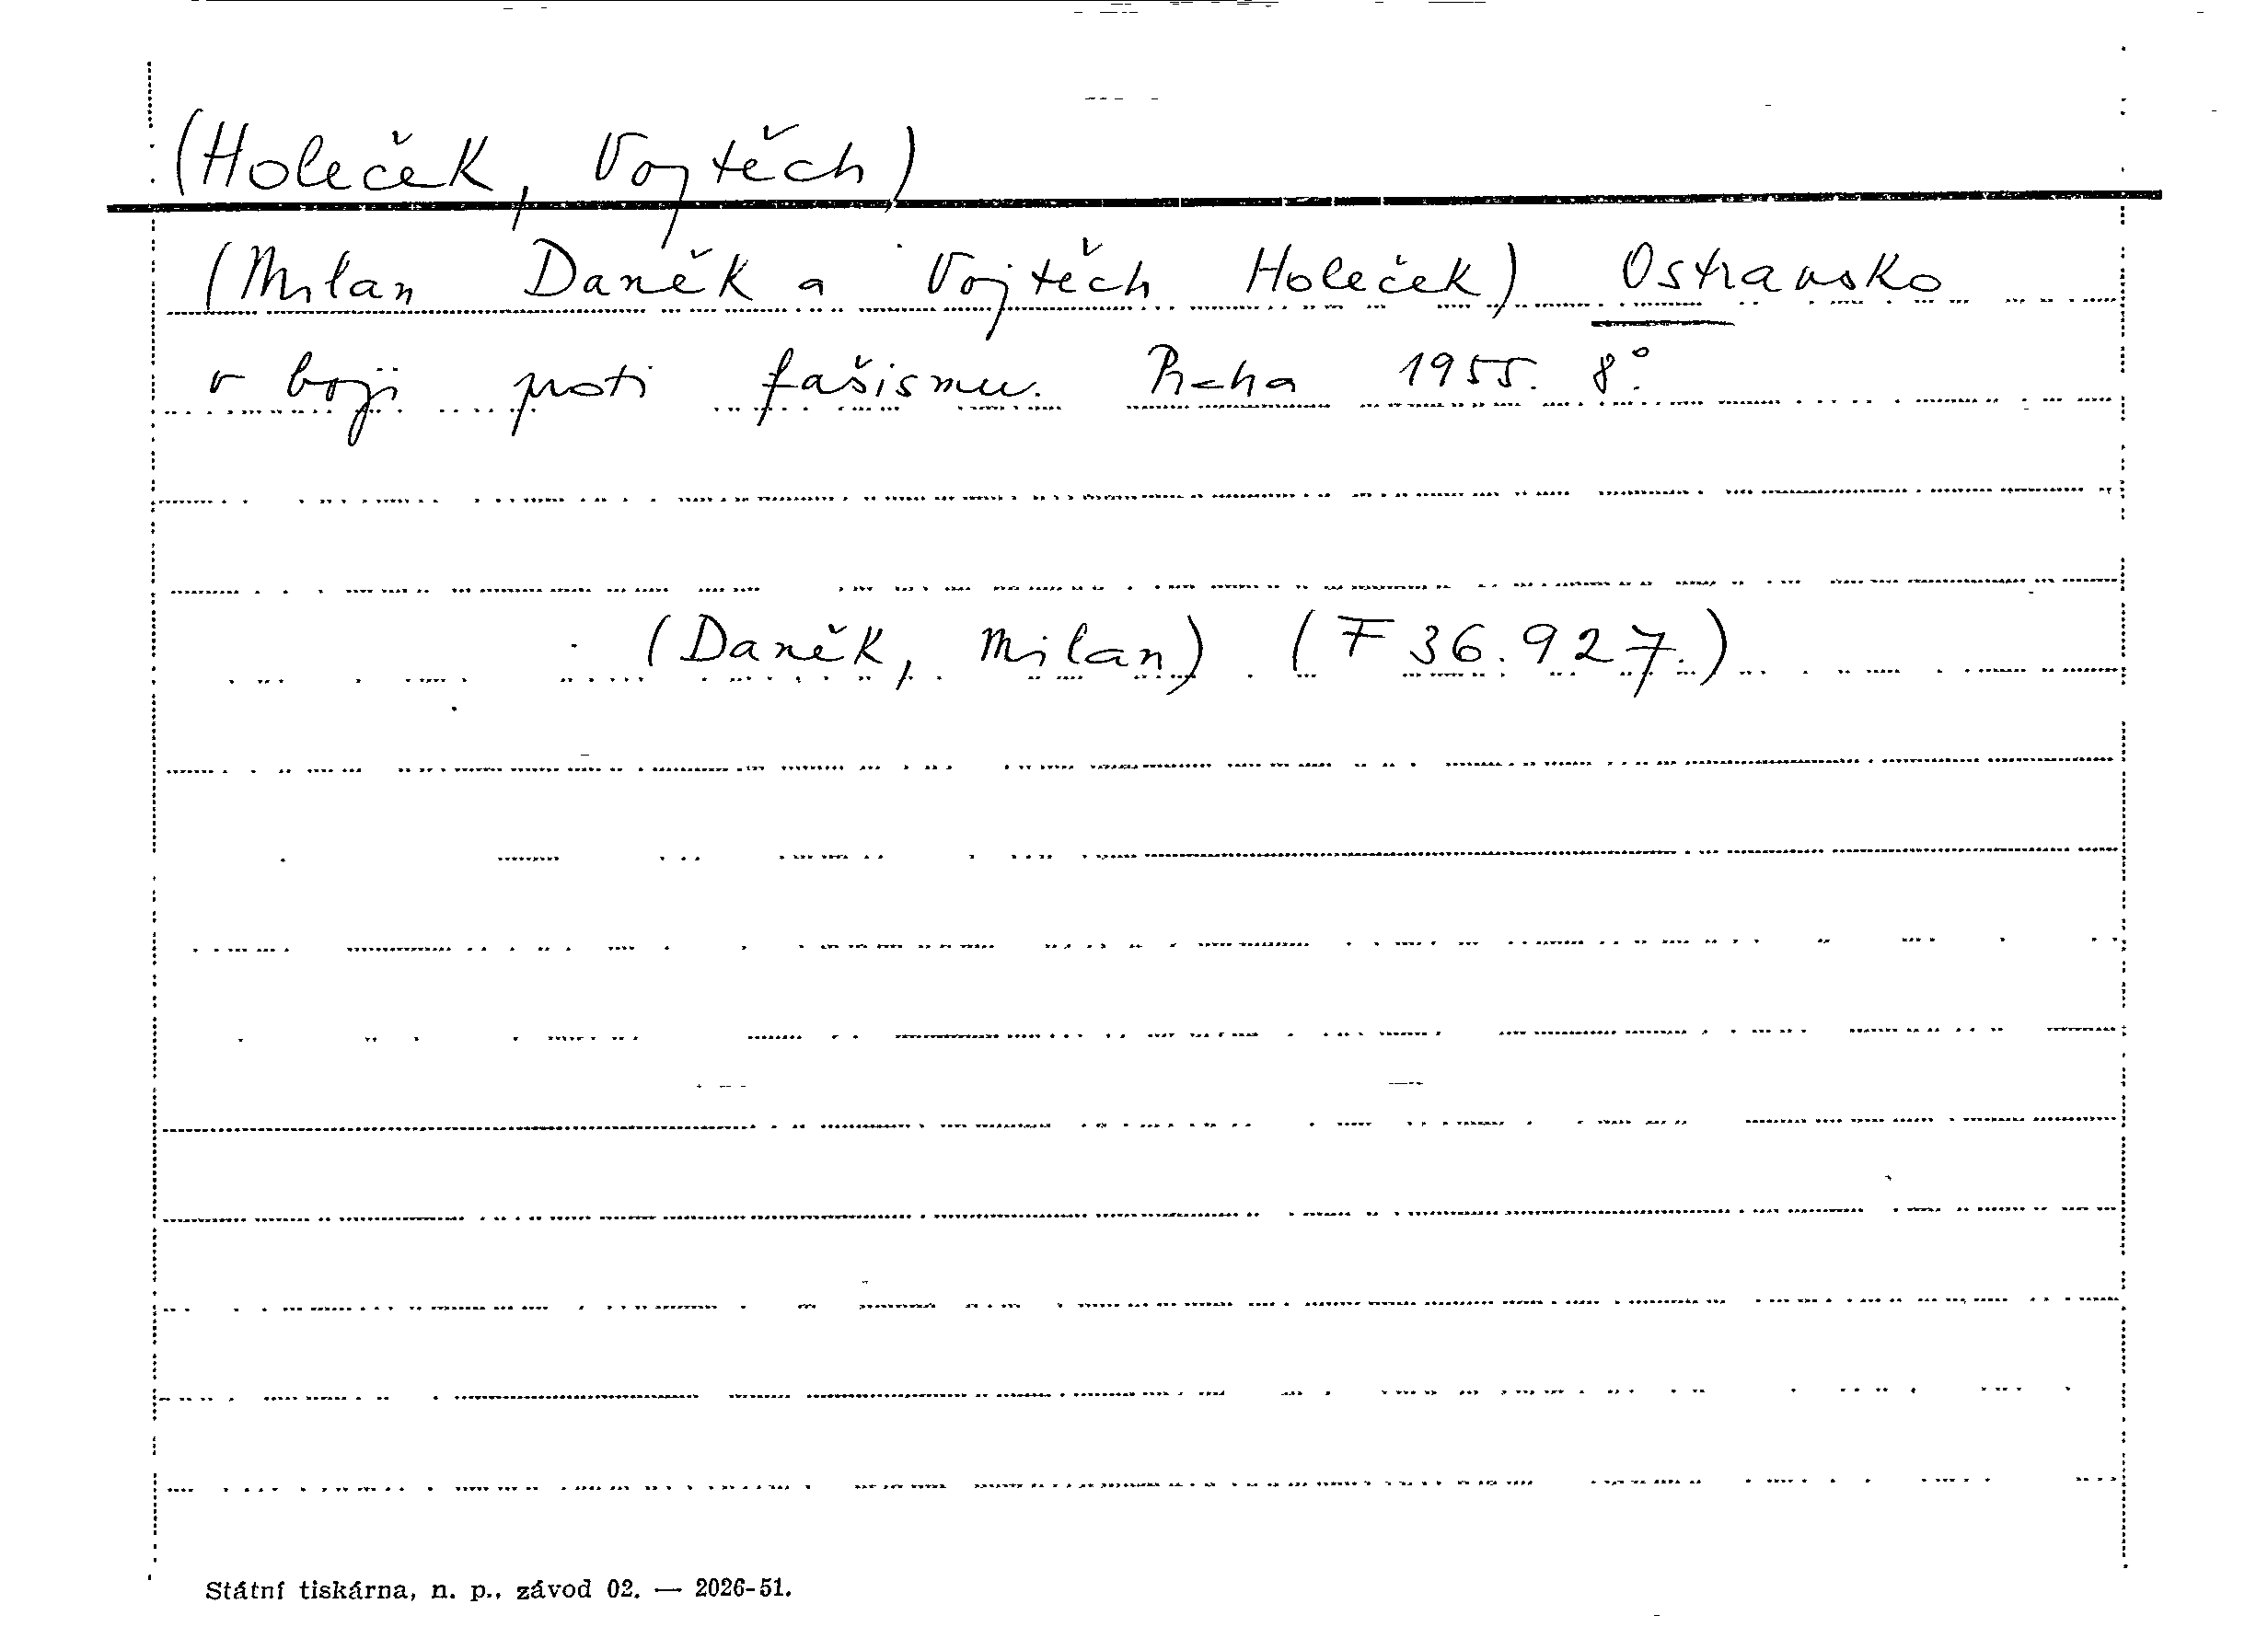 (Holeček, Vojtěch)
(Milan Daněk a Vojtěch Holeček) Ostravsko
v boji proti fašismu. Praha 1955. 8°.
(Daněk, Milan) (F 36.927.)
Státní tiskárna, n. p., závod 02. — 2026-51.